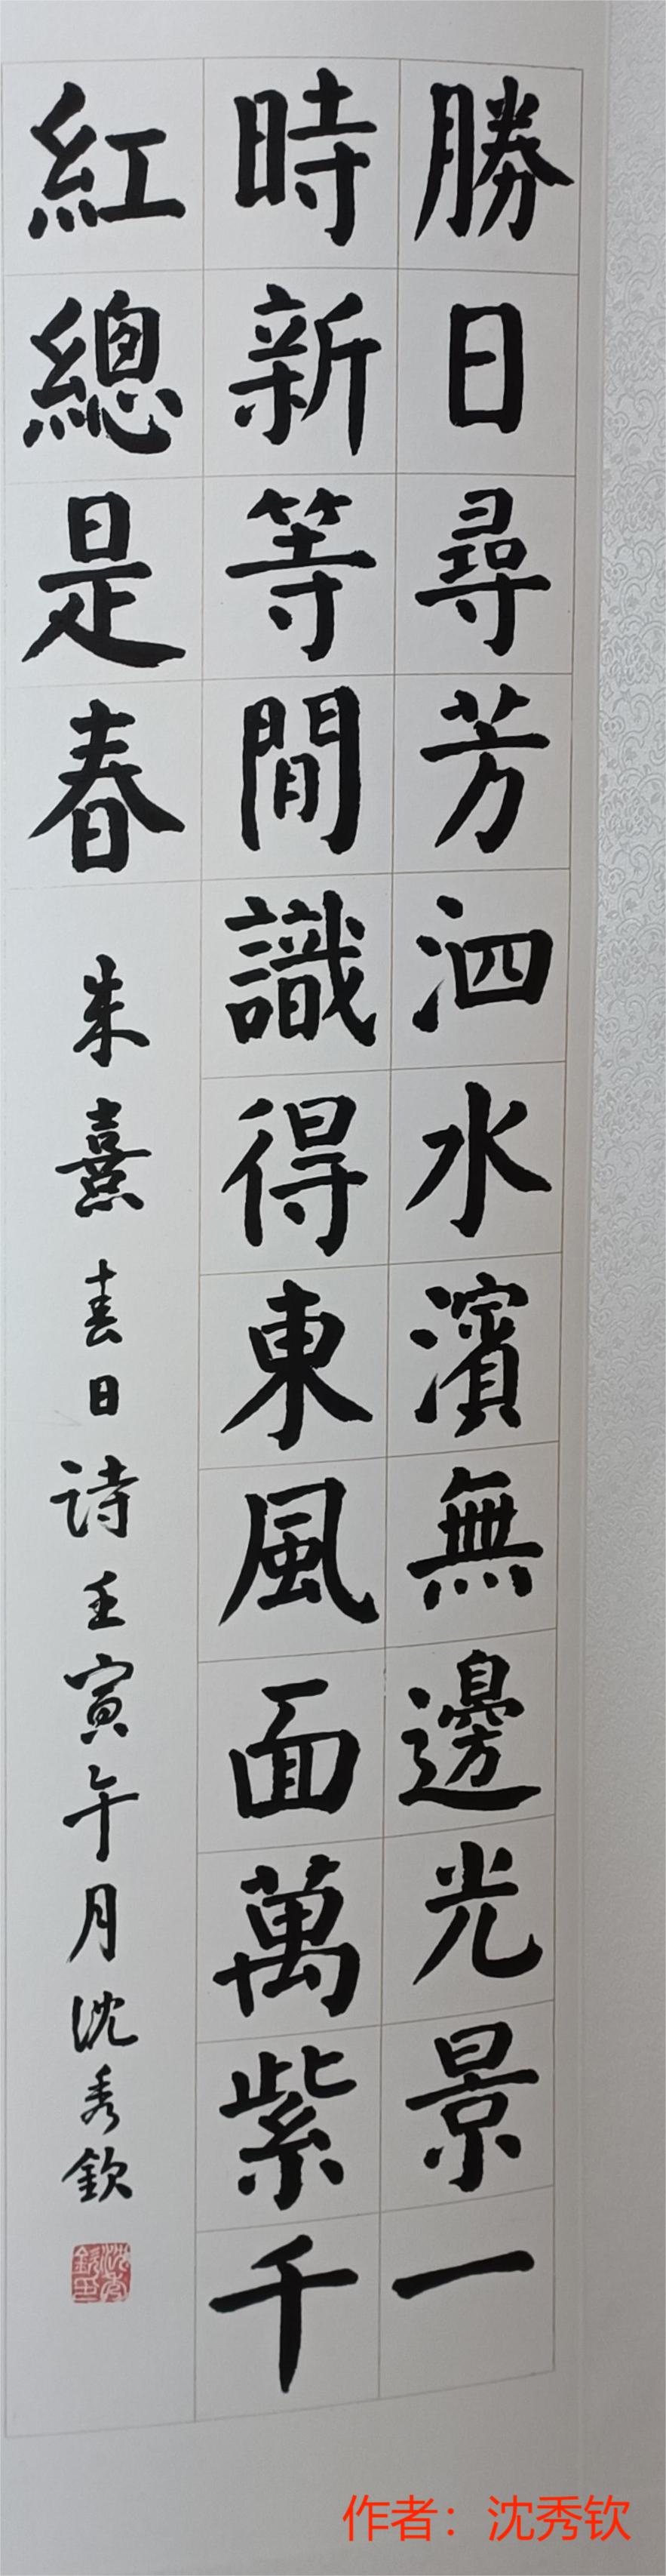 勝日尋芳泗水濱無邊光景一
時新等閒識得東風面萬紫千
紅總是春
朱熹春日诗壬寅午月沈秀欽
作者：沈秀钦